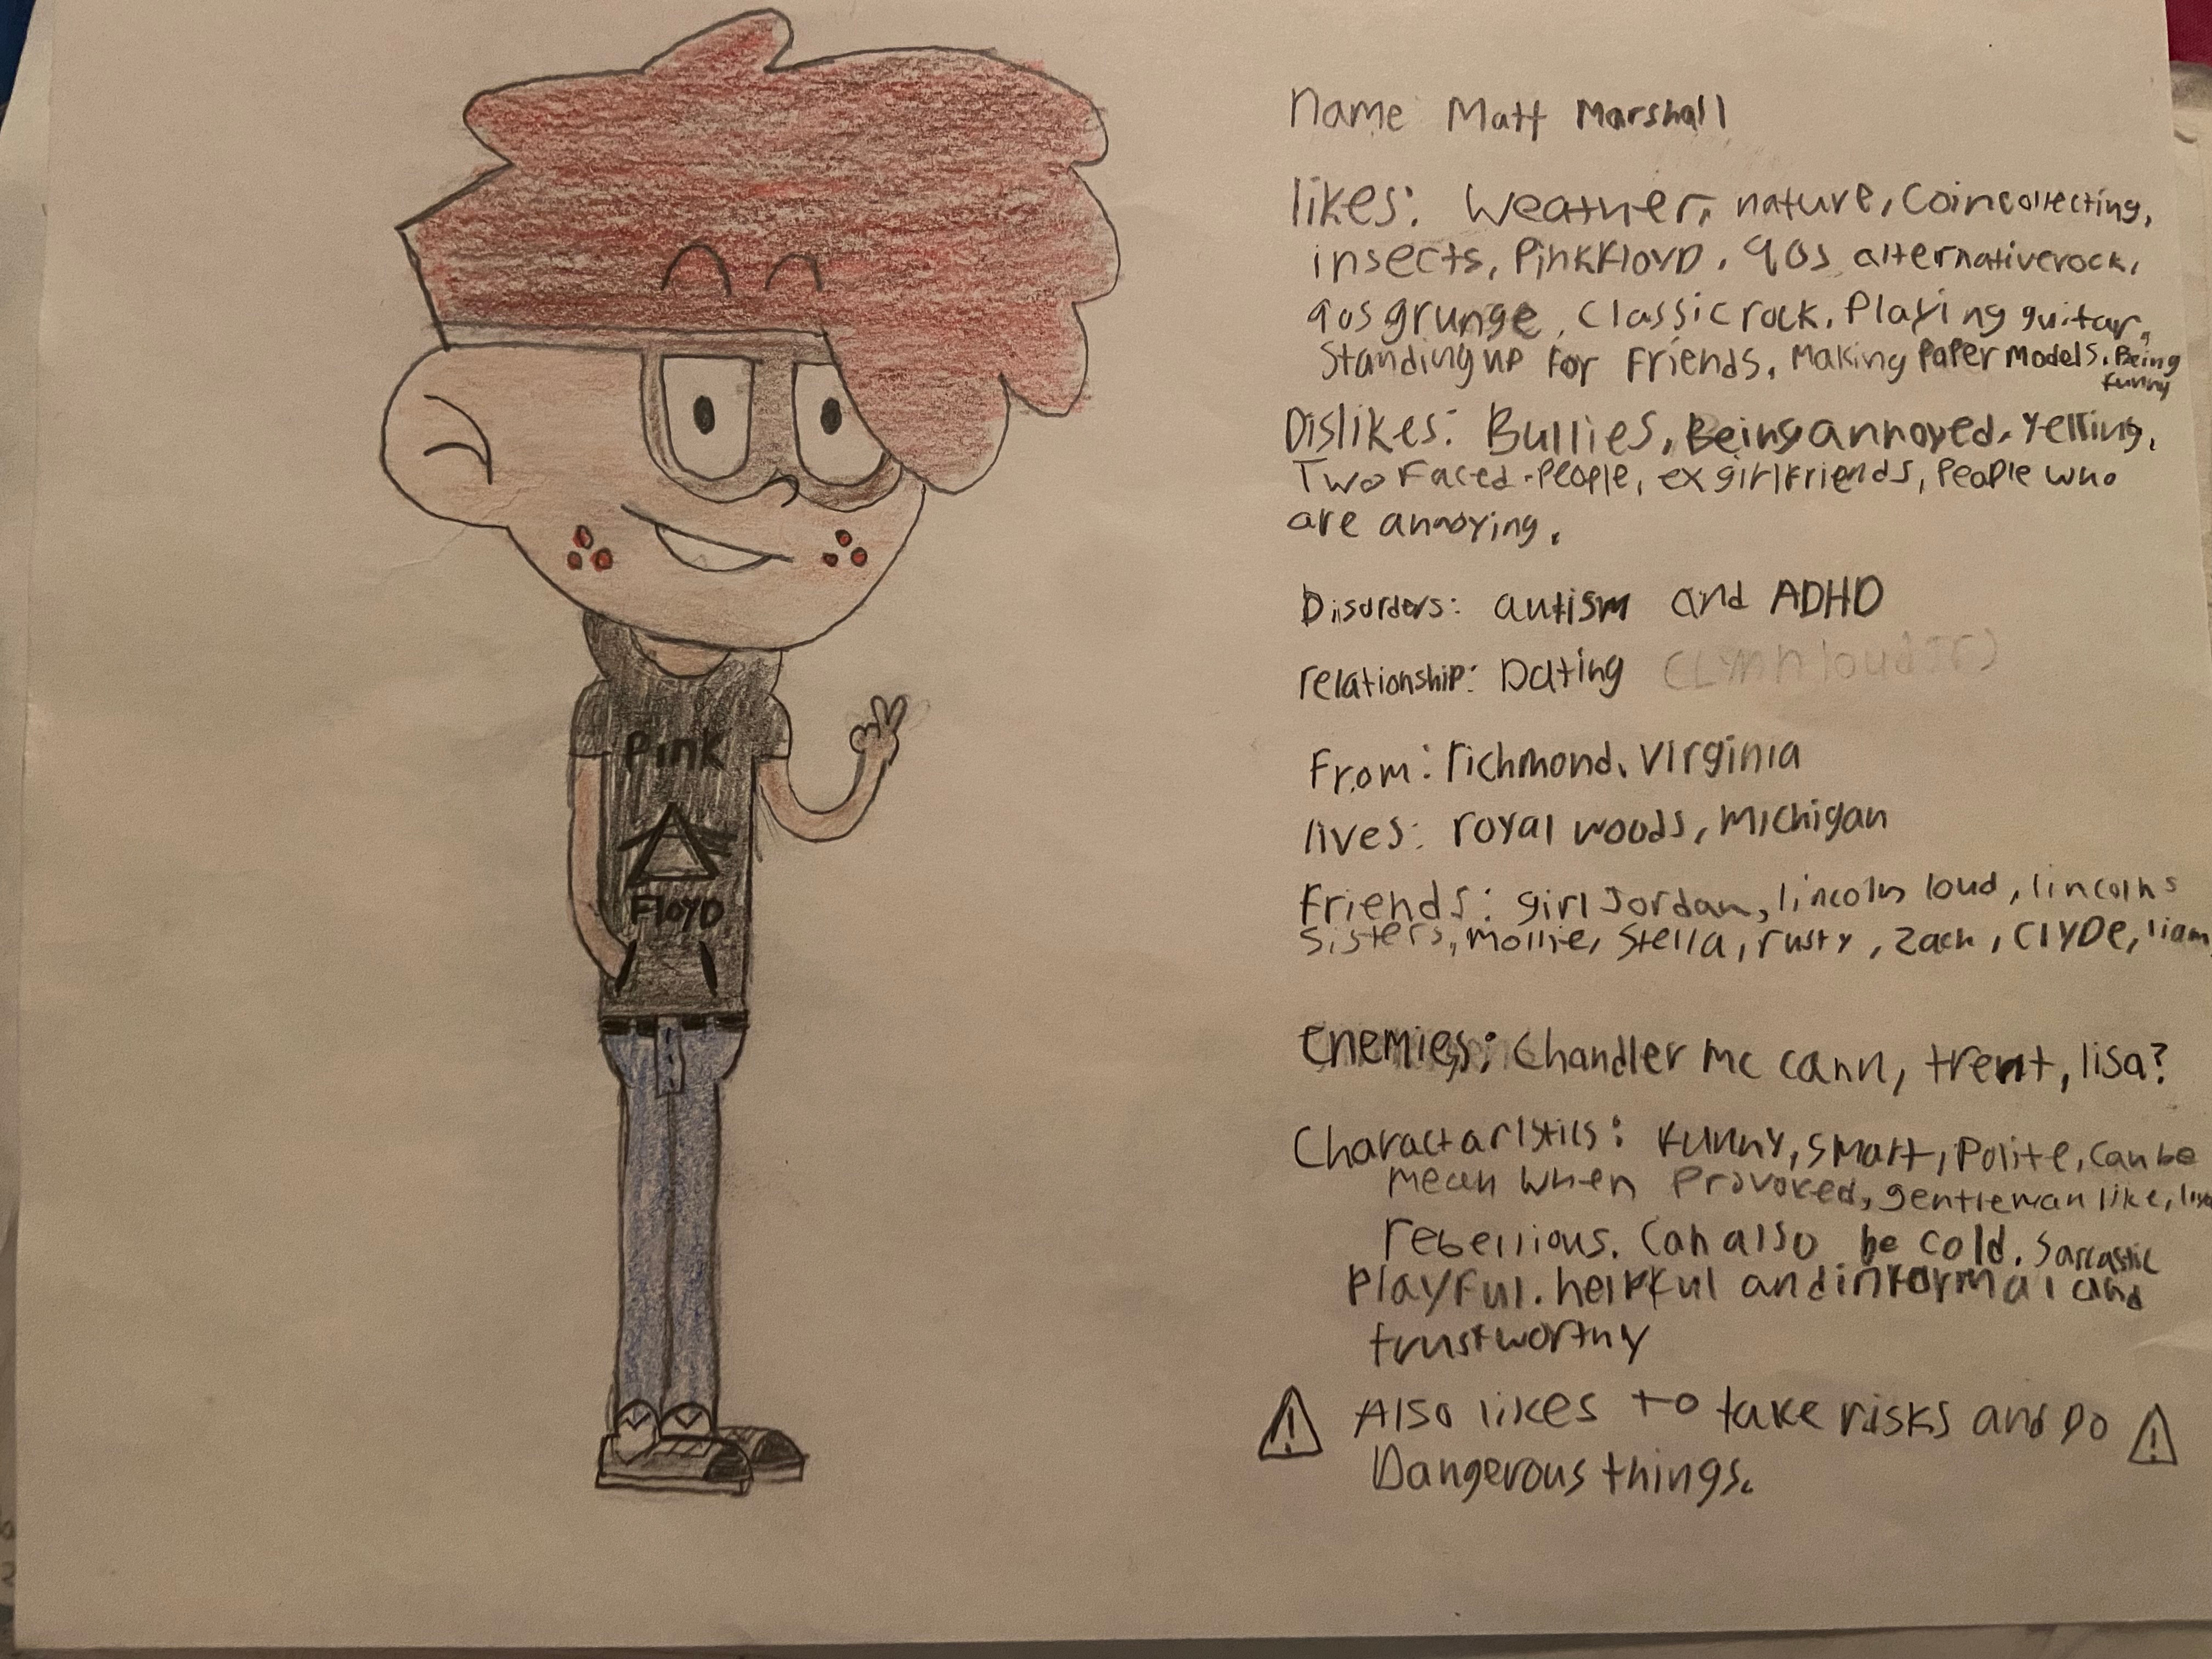 Pink
Floyd
Name Matt Marshall
likes: Weather, nature, Coin collecting,
insects, Pink Floyd, 90s alternative rock,
90s grunge, Classic rock, Playing guitar,
Standing up for Friends, Making Paper Models, Being
funny
Dislikes: Bullies, Being annoyed, Yelling,
Two Faced-People, ex girlfriends, People who
are annoying.
Disorders: autism and ADHD
relationship: Dating (Lynn loud Jr)
From: richmond, Virginia
lives: royal woods, Michigan
Friends: girl Jordan, lincoln loud, lincolns
sisters, mollie, Stella, rusty, Zach, Clyde, liam
Enemies: Chandler Mc Cann, trent, lisa?
Charactaristics: Funny, Smart, Polite, Can be
mean when Provoked, gentleman like,
rebellious. Can also be cold. Sarcastic
Playful. helpful and informal and
trustworthy
Also likes to take risks and Do
Dangerous things.